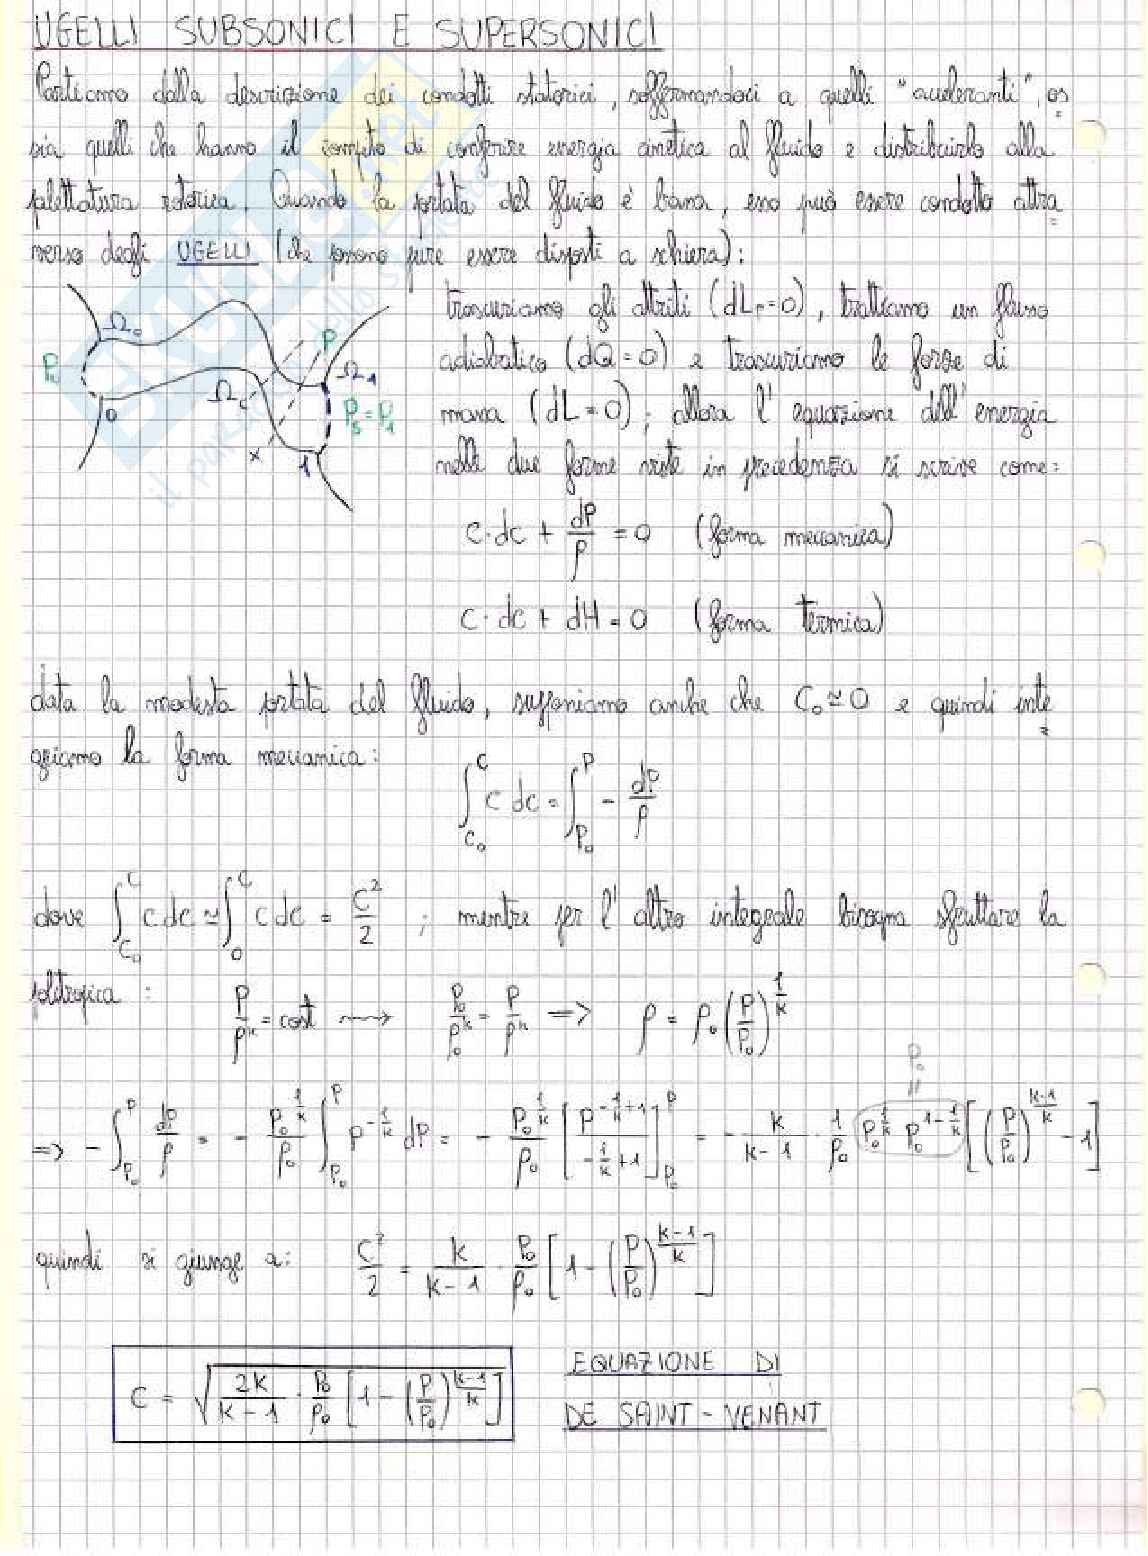 UGELLI SUBSONICI E SUPERSONICI
Partiamo dalla descrizione dei condotti statorici, soffermandoci a quelli "acceleranti", os
sia quelli che hanno il compito di conferire energia cinetica al fluido e distribuirlo alla
palettatura rotorica. Quando la portata del fluido è bassa, esso può essere condotto attra
verso degli UGELLI (che possono pure essere disposti a schiera):
trascuriamo gli attriti (dLr=0), trattiamo un flusso
adiabatico (dQ=0) e trascuriamo le forze di
massa (dL=0); allora l'equazione dell'energia
nelle due forme viste in precedenza si scrive come:
Ω₀
P
P₀
Ω₁
Ωc
0
P₅=P₁
x
1
c·dc + dP/ρ = 0 (forma meccanica)
c·dc + dH = 0 (forma termica)
data la modesta portata del fluido, supponiamo anche che C₀≃0 e quindi inte
griamo la forma meccanica:
∫_{C₀}^{C} c dc = ∫_{P₀}^{P} - dP/ρ
dove ∫_{C₀}^{C} c dc ≃ ∫_{0}^{C} c dc = C²/2 ; mentre per l'altro integrale bisogna sfruttare la
politropica: P/ρ^k = cost ⟿ P₀/ρ₀^k = P/ρ^k => ρ = ρ₀(P/P₀)^{1/k}
P₀
=
=> - ∫_{P₀}^{P} dP/ρ = - P₀^{1/k}/ρ₀ ∫_{P₀}^{P} P^{-1/k} dP = - P₀^{1/k}/ρ₀ [P^{-1/k+1}/(-1/k+1)]_{P₀}^{P} = - k/(k-1) · 1/ρ₀ P₀^{1/k} P₀^{1-1/k} [(P/P₀)^{(k-1)/k} - 1]
quindi si giunge a: C²/2 = k/(k-1) · P₀/ρ₀ [1 - (P/P₀)^{(k-1)/k}]
C = √(2k/(k-1) · P₀/ρ₀ [1 - (P/P₀)^{(k-1)/k}])
EQUAZIONE DI
DE SAINT-VENANT